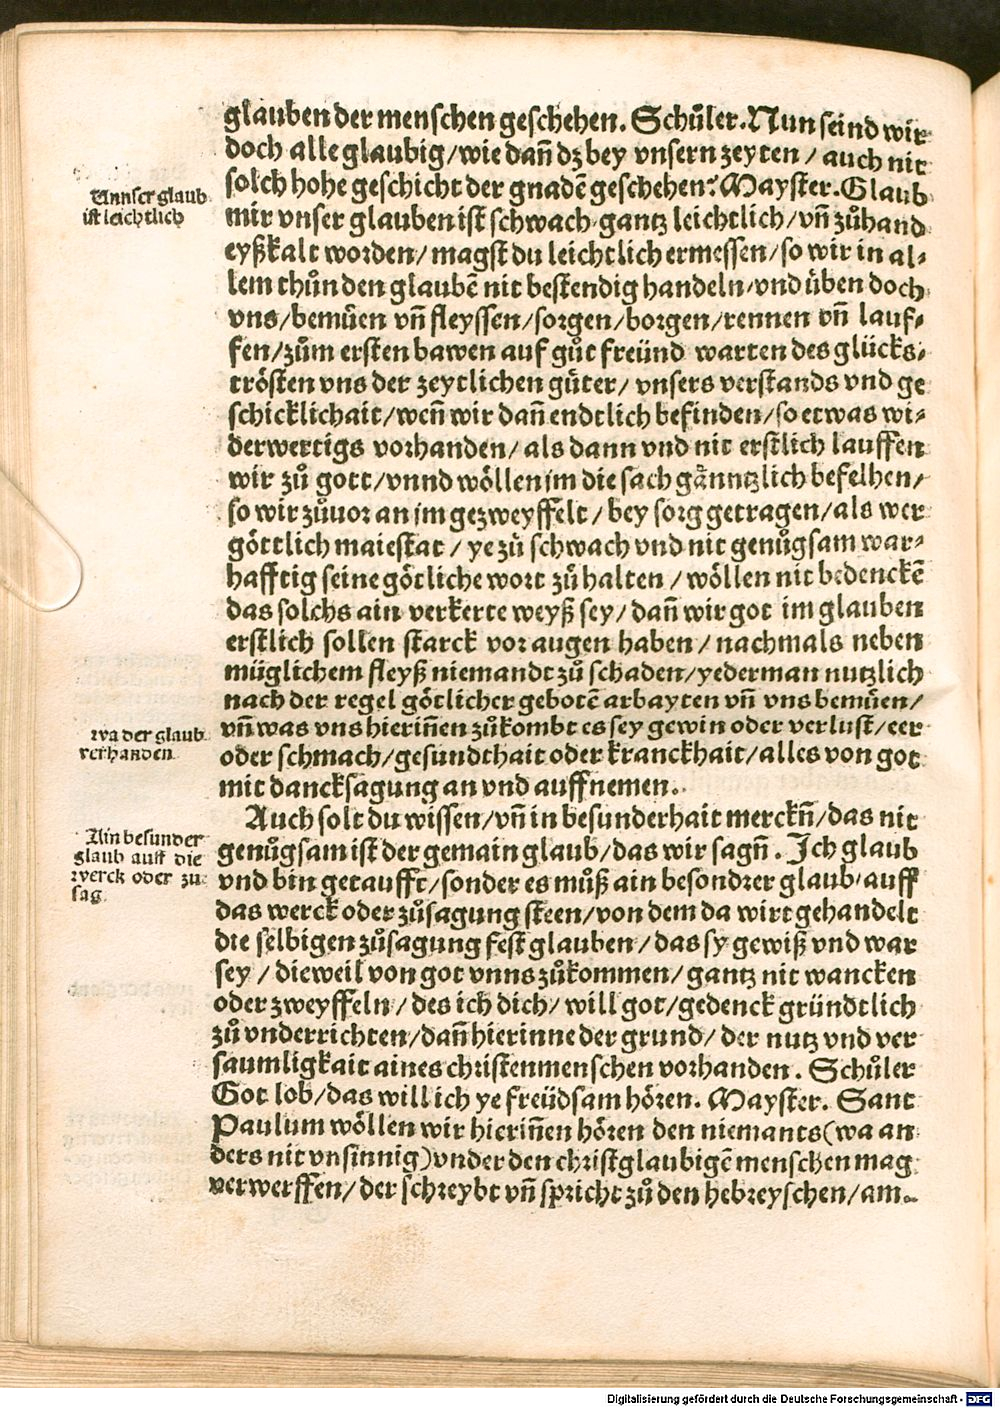 glauben der menschen geschehen. Schůler. Nun seind wir
doch alle glaubig/wie dañ dz bey vnsern zeyten/ auch nit
solch hohe geschicht der gnadē geschehen? Mayster. Glaub
Vnnser glaub
ist leichtlich
mir vnser glauben ist schwach gantz leichtlich/vñ zůhand
eyßkalt worden/ magst du leichtlich ermessen/so wir in al⸗
lem thůn den glaubē nit bestendig handeln/vnd üben doch
vns/bemüen vñ fleyssen/sorgen/borgen/rennen vñ lauf⸗
fen/zům ersten bawen auf gůt freünd warten des glücks/
trösten vns der zeytlichen güter/ vnsers verstands vnd ge
schicklichait/weñ wir dañ endtlich befinden/so etwas wi⸗
derwertigs vorhanden/ als dann vnd nit erstlich lauffen
wir zů gott/vnnd wöllen jm die sach gänntzlich befelhen/
so wir zůuor an jm gezweyffelt/ bey sorg getragen/als wer
göttlich maiestat/ ye zů schwach vnd nit genůgsam war⸗
hafftig seine götliche wort zů halten/ wöllen nit bedenckē
das solchs ain verkerte weyß sey/ dañ wir got im glauben
erstlich sollen starck vor augen haben/ nachmals neben
müglichem fleyß niemandt zů schaden/yederman nutzlich
nach der regel götlicher gebotē arbayten vñ vns bemüen/
wa der glaub
verhanden
vñ was vns hieriñen zůkombt es sey gewin oder verlust/eer
oder schmach/gesundthait oder kranckhait/alles von got
mit dancksagung an vnd auffnemen.
Auch solt du wissen/vñ in besunderhait merckñ/das nit
Ain besunder
glaub auff die
werck oder zu
sag
genůgsam ist der gemain glaub/das wir sagñ. Ich glaub
vnd bin getaufft/sonder es můß ain besondrer glaub/auff
das werck oder zůsagung steen/von dem da wirt gehandelt
die selbigen zůsagung fest glauben/das sy gewiß vnd war
sey/ dieweil von got vnns zůkommen/ gantz nit wancken
oder zweyffeln/ des ich dich/ will got/gedenck gründtlich
zů vnderrichten/dañ hierinne der grund/ der nutz vnd ver
saumligkait aines christenmenschen vorhanden. Schůler
Got lob/das will ich ye freüdsam hören. Mayster. Sant
Paulum wöllen wir hieriñen hören den niemants(wa an
ders nit vnsinnig)vnder den christglaubigē menschen mag
verwerffen/ der schreybt vñ spricht zů den hebreyschen/am
Digitalisierung gefördert durch die Deutsche Forschungsgemeinschaft - DFG